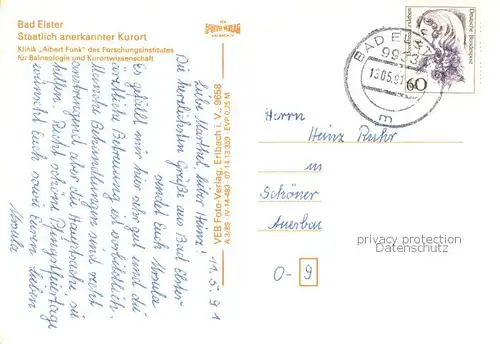 Bad Elster
Staatlich anerkannter Kurort
Klinik „Albert Funk" des Forschungsinstitutes
für Balneologie und Kurortwissenschaft
FOTO VERLAG
VEB Foto-Verlag, Erlbach i. V., 9658
A 3/89 · IV-14-483 · 07 14 13 309 EVP 0,25 M
11.5.91
Liebe Marthel, lieber Heinz!
Die herzlichsten Grüße aus Bad Elster
sendet Euch Ursula
Es gefällt mir hier sehr gut und die
ärztliche Betreuung ist vorbildlich.
Manche Behandlungen sind recht
anstrengend aber die Hauptsache sie
helfen. Recht schöne Pfingstfeiertage
wünscht Euch sowie Euren Lieben
Ursula
BAD ELSTER
9933
13.05.91
m
Deutsche Bundespost
60
Herrn
Heinz Ruhr
in
Schöner
Auerbac
O-9
privacy protection
Datenschutz